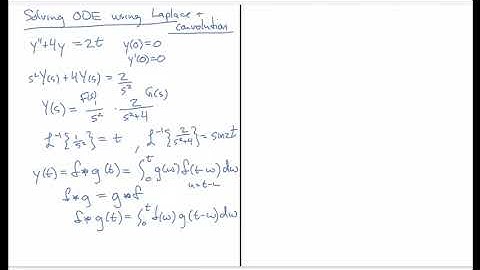 Solving ODE using Laplace + convolution
y''+4y = 2t y(0)=0
y'(0)=0
s²Y(s)+4Y(s)=2/s²
F(s) G(s)
Y(s)= 1/s² · 2/(s²+4)
ℒ⁻¹{1/s²}=t , ℒ⁻¹{2/(s²+4)}=sin2t
y(t)= f*g(t)=∫₀ᵗ g(w)f(t-w)dw
f*g = g*f
f*g(t)=∫₀ᵗ f(w)g(t-w)dw